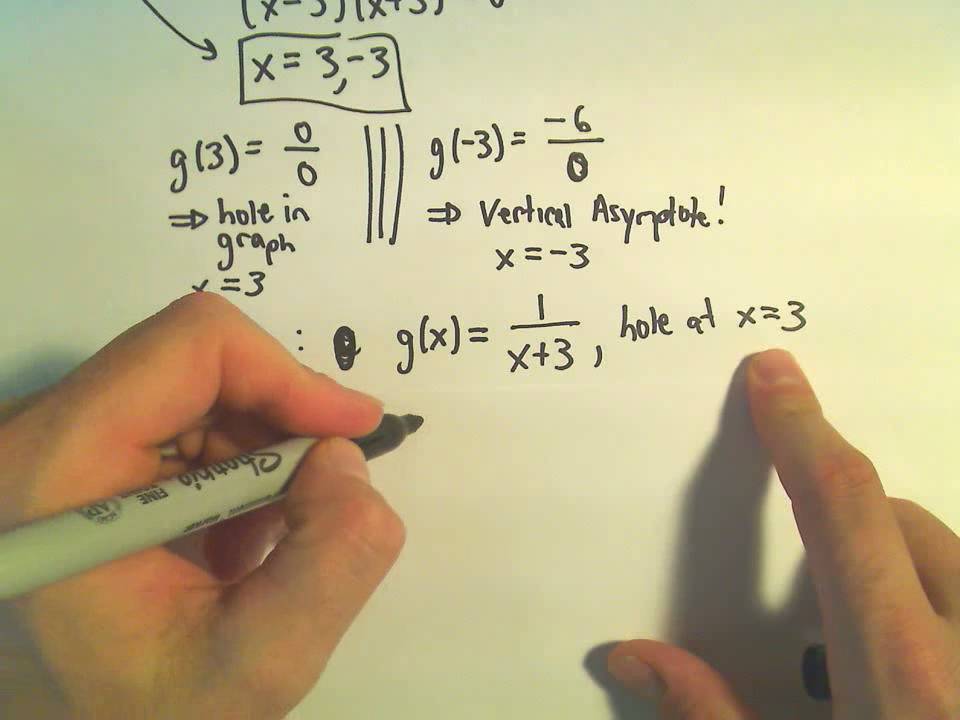 (x-3)(x+3)
x = 3,-3
g(3) = 0/0
⇒ hole in
graph
x = 3
g(-3) = -6/0
⇒ Vertical Asymptote!
x = -3
: g(x) = 1/x+3, hole at x=3
Sharpie
FINE